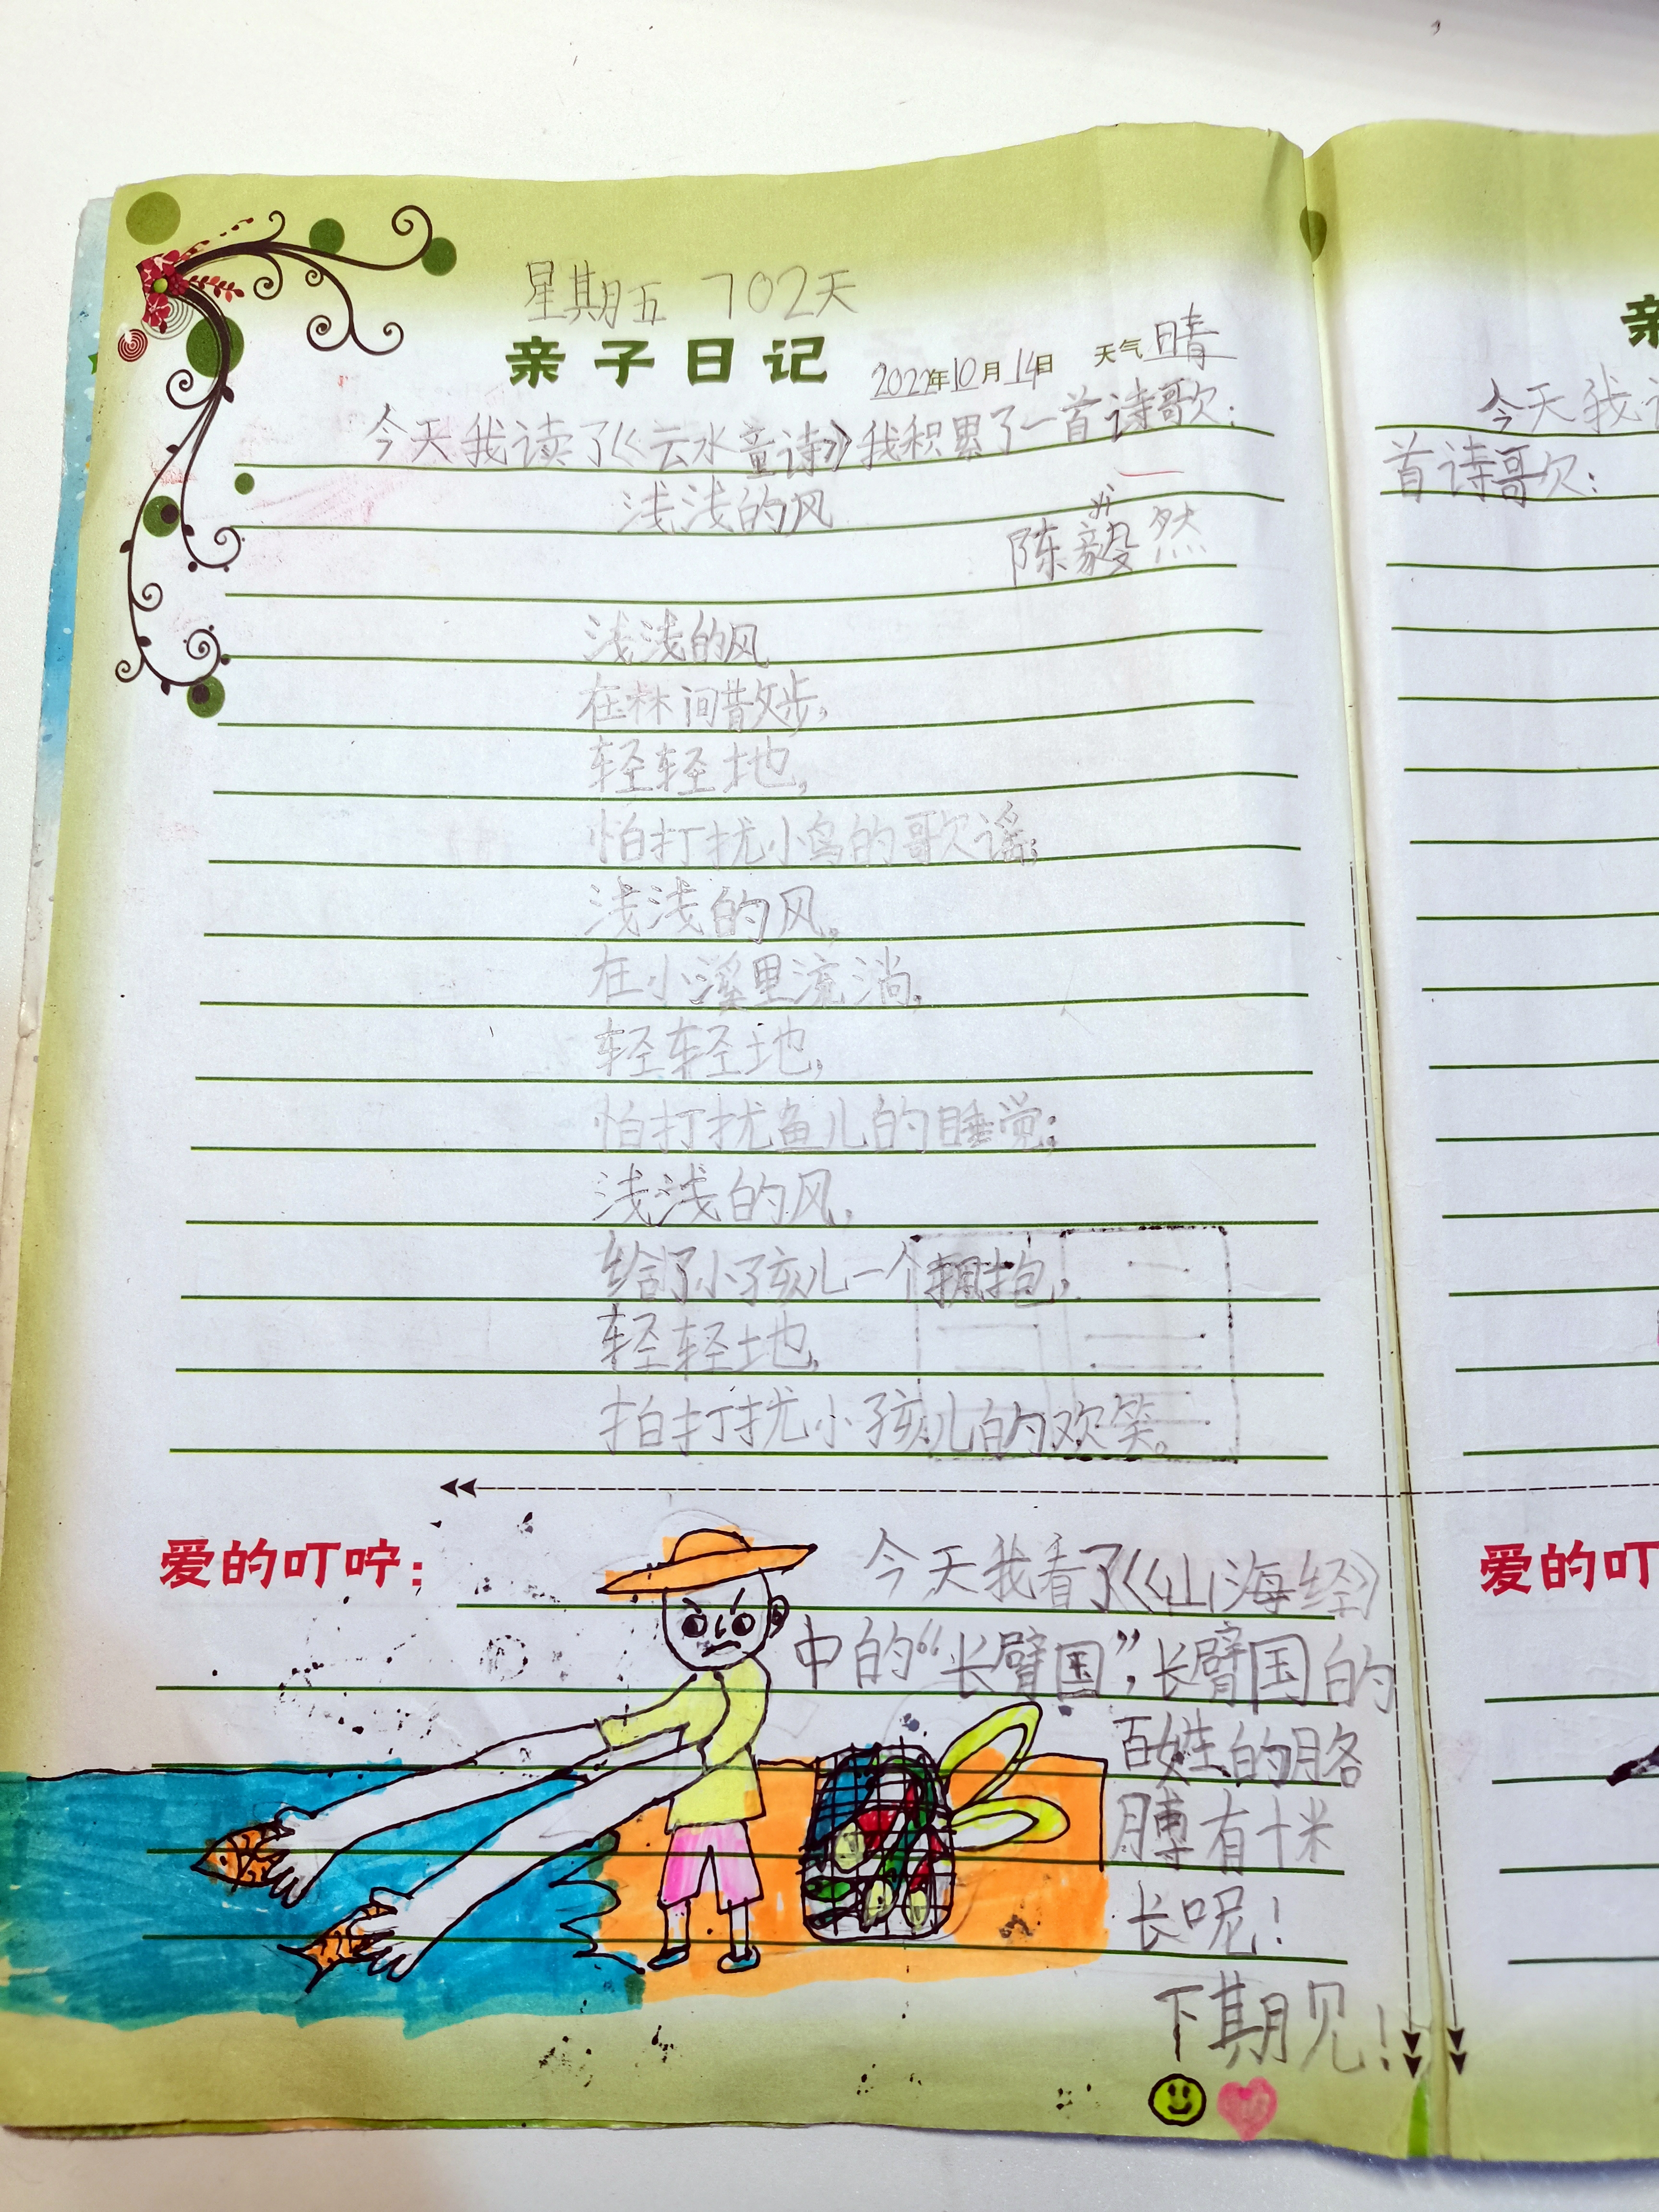 星期五 702天
亲子日记 2022年10月14日 天气 晴
今天我读了《云水童诗》我积累了一首诗歌:
浅浅的风
陈毅然
浅浅的风
在林间散步,
轻轻地,
怕打扰小鸟的歌谣;
浅浅的风,
在小溪里流淌,
轻轻地,
怕打扰鱼儿的睡觉;
浅浅的风,
给了小孩儿一个拥抱,
轻轻地,
拍打扰小孩儿的欢笑。
爱的叮咛:
今天我看了《山海经》
中的“长臂国”,长臂国的
百姓的胳
膊有十米
长呢!
下期见!
亲
今天我
首诗歌:
爱的叮